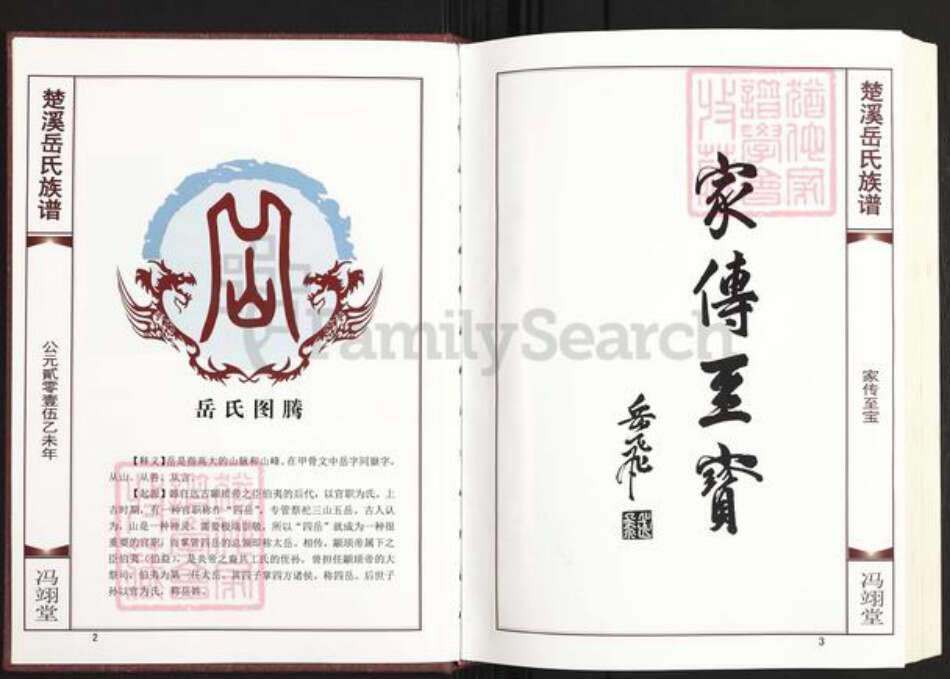 楚溪岳氏族谱
公元貳零壹伍乙未年
冯翊堂
岳氏图腾
【释义】岳是指高大的山脉和山峰。在甲骨文中岳字同嶽字，
从山、从兽、从言。
【起源】源自远古颛顼帝之臣伯夷的后代，以官职为氏。上
古时期，有一种官职称作“四岳”，专管祭祀三山五岳。古人认
为，山是一种神灵，需要极端崇敬，所以“四岳”就成为一种很
重要的官职，而掌管四岳的总领即称太岳。相传，颛顼帝属下之
臣伯夷（伯益），是炎帝之裔共工氏的侄孙，曾担任颛顼帝的大
祭司，伯夷为第一任太岳，其四子掌四方诸侯，称四岳。后世子
孙以官为氏，称岳姓。
2
FamilySearch
家傳至寳
岳飛
楚溪岳氏族谱
家传至宝
冯翊堂
3